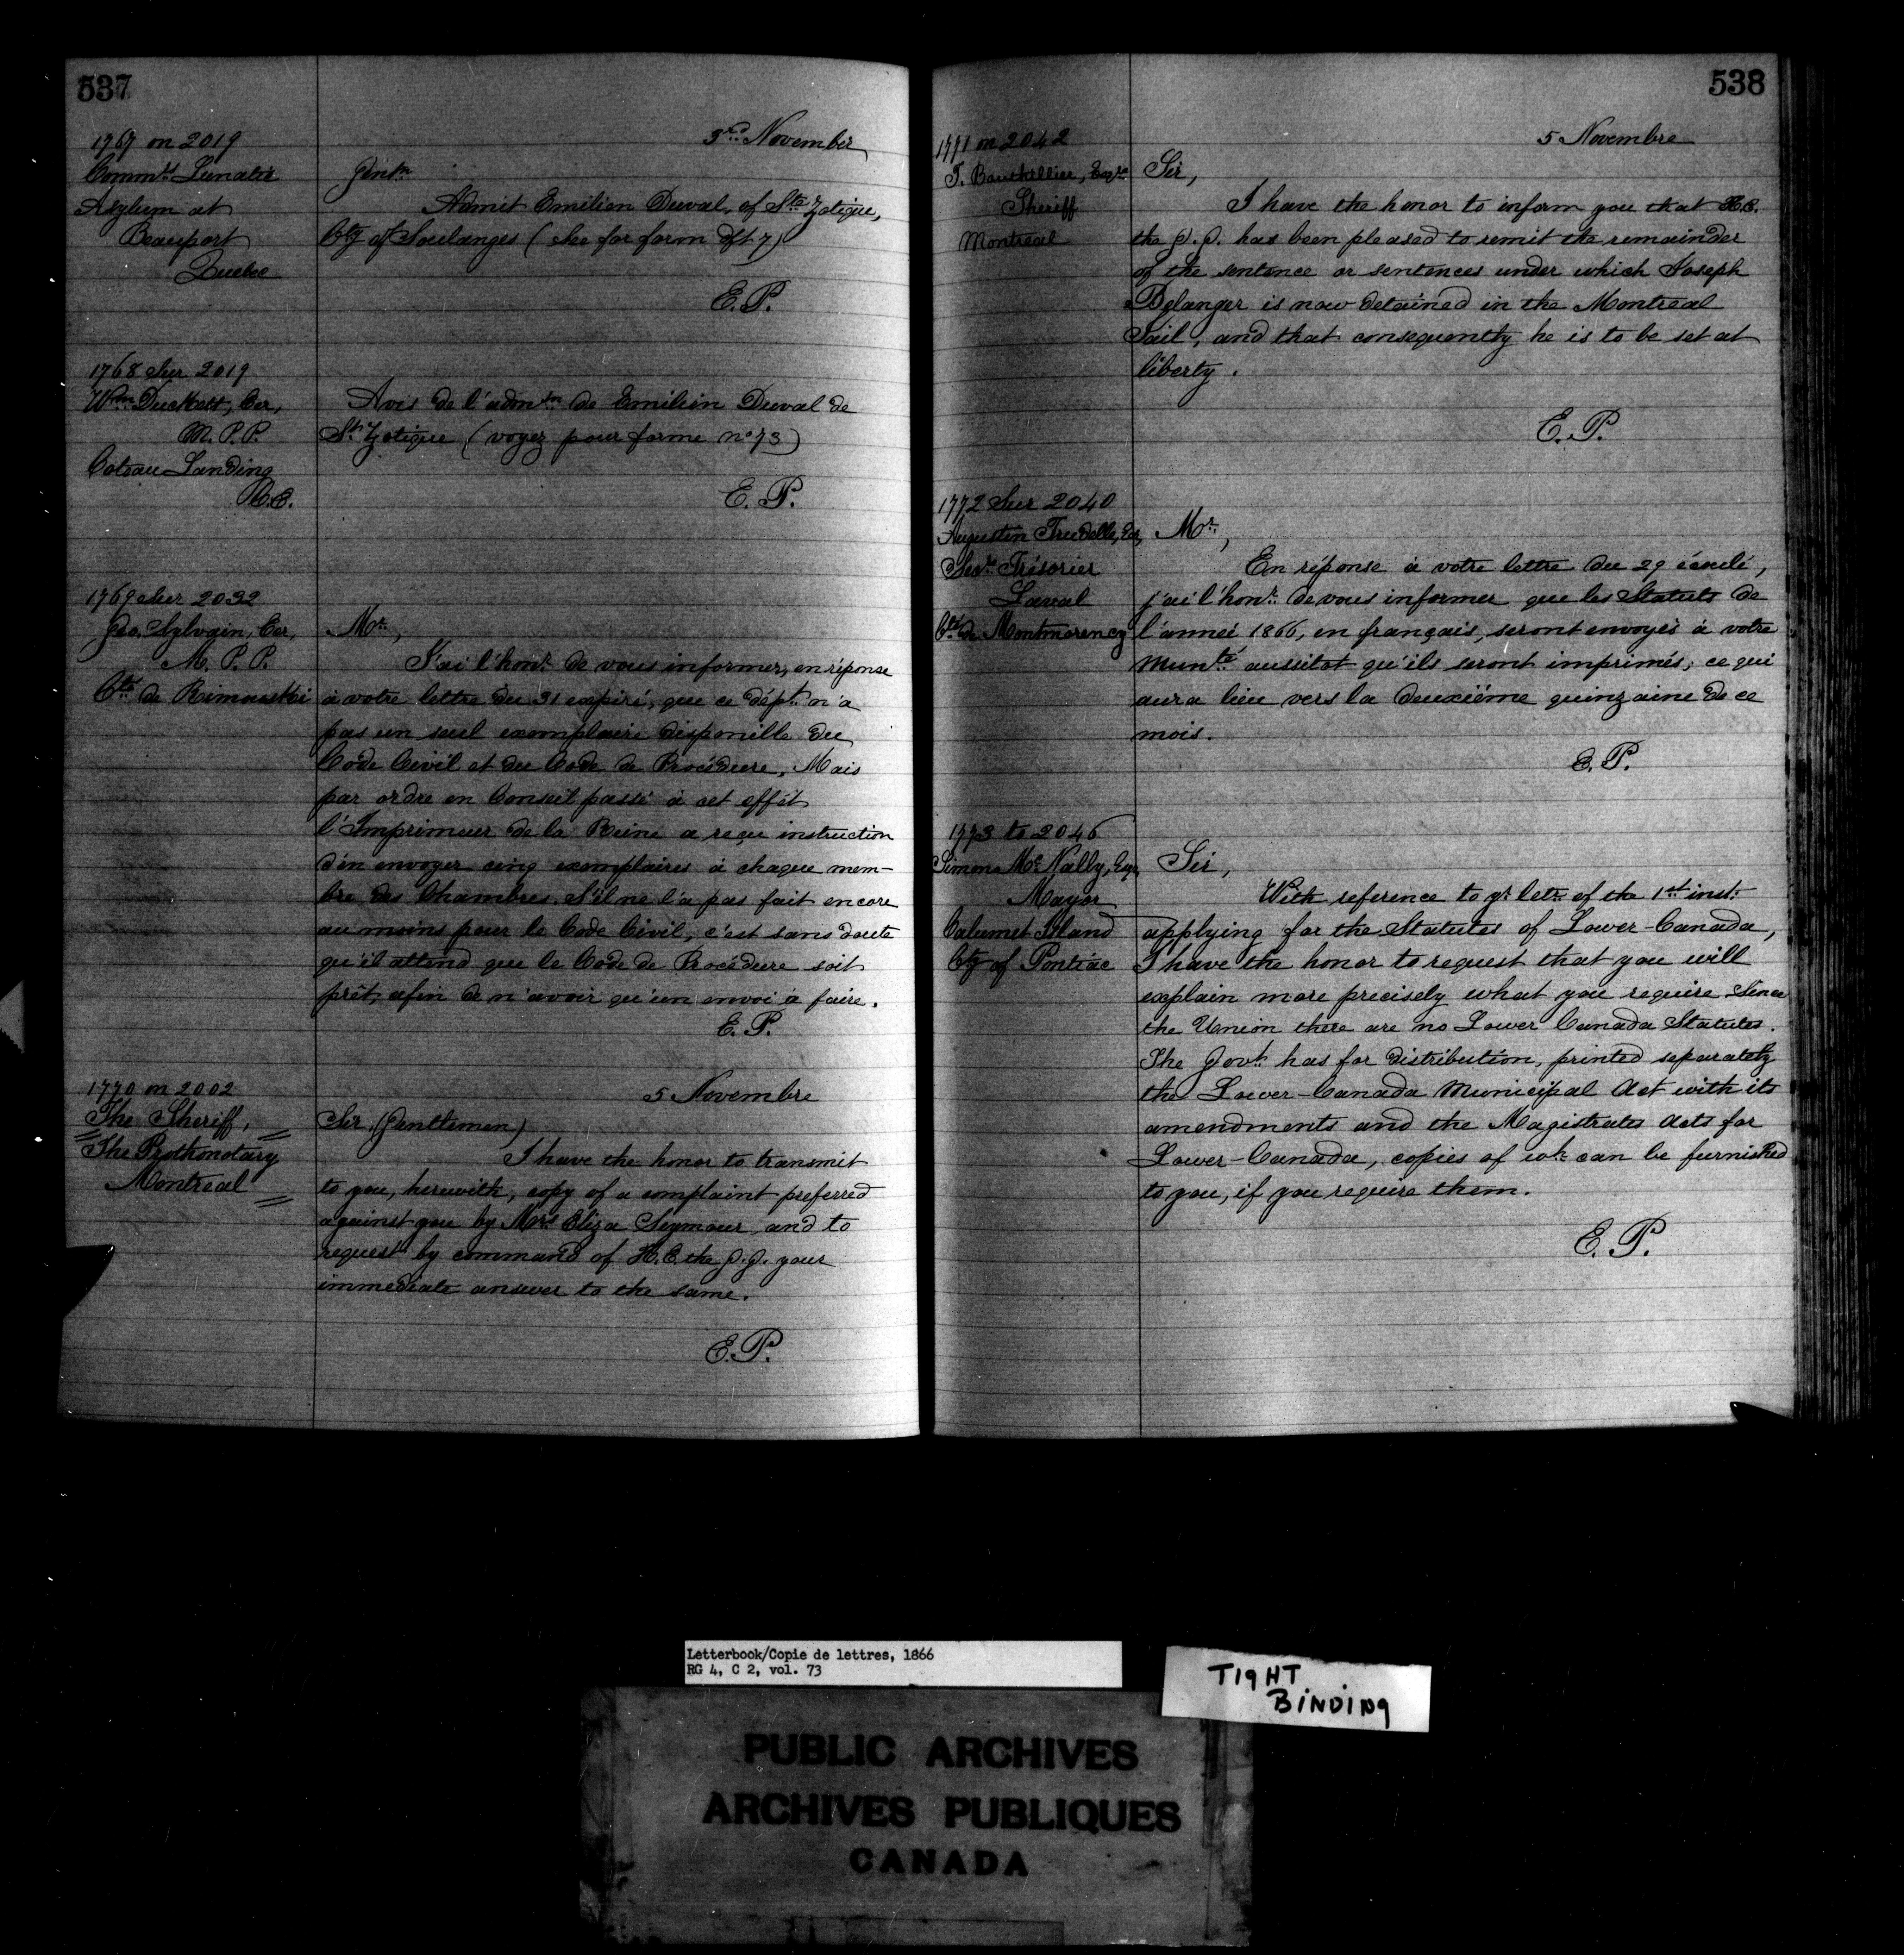 537
3rd November
1767 on 2019
Commrs Lunatic
Asylum at
Beauport
Quebec
Gentn
Admit Emilien Duval, of Ste Zotique,
Cty of Soulanges (see for form dft 7)
E. P.
1768 Sur 2019
Wm Duckett, Ecr,
M. P. P.
Coteau Landing
B.C.
Avis de l'admon de Emilien Duval de
St Zotique (voyez pour forme no 73)
E. P.
1769 Sur 2032
Geo. Sylvain, Ecr,
M. P. P.
Cté de Rimouski
Mr,
J'ai l'honr de vous informer, en réponse
à votre lettre du 31 expiré, que ce dépt n'a
pas un seul exemplaire disponible du
Code Civil et du Code de Procédure. Mais
par ordre en Conseil passé à cet effet
l'Imprimeur de la Reine a reçu instruction
d'en envoyer cinq exemplaires à chaque mem-
bre des Chambres. S'il ne l'a pas fait encore
au moins pour le Code Civil, c'est sans doute
qu'il attend que le Code de Procédure soit
prêt, afin de n'avoir qu'un envoi à faire.
E. P.
1770 on 2002
The Sheriff,
The Prothonotary
Montreal
5 Novembre
Sir (Gentlemen)
I have the honor to transmit
to you, herewith, copy of a complaint preferred
against you by Mrs Eliza Seymour, and to
request by command of H. E. the G. G. your
immediate answer to the same.
E. P.
538
5 Novembre
1771 on 2042
T. Bouthillier, Esqre
Sheriff
Montreal
Sir,
I have the honor to inform you that H.E.
the G. G. has been pleased to remit the remainder
of the sentence or sentences under which Joseph
Belanger is now detained in the Montreal
Jail, and that consequently he is to be set at
liberty.
E. P.
1772 Sur 2040
Augustin Trudelle, Ecr,
Secre Trésorier
Laval
Cté de Montmorency
Mr,
En réponse à votre lettre du 29 écoulé,
j'ai l'honr de vous informer que les Statuts de
l'année 1866, en français, seront envoyés à votre
Munté aussitot qu'ils seront imprimés; ce qui
aura lieu vers la deuxième quinzaine de ce
mois.
E. P.
1773 to 2046
Simon Mc Nally, Esqr,
Mayor
Calumet Island
Cty of Pontiac
Sir,
With reference to yr letr of the 1st inst.
applying for the Statutes of Lower-Canada,
I have the honor to request that you will
explain more precisely what you require. Since
the Union there are no Lower Canada Statutes.
The Govt has for distribution, printed separately
the Lower-Canada Municipal Act with its
amendments and the Magistrates Acts for
Lower-Canada, copies of wh can be furnished
to you, if you require them.
E. P.
Letterbook/Copie de lettres, 1866
RG 4, C 2, vol. 73
TIGHT
BINDING
PUBLIC ARCHIVES
ARCHIVES PUBLIQUES
CANADA